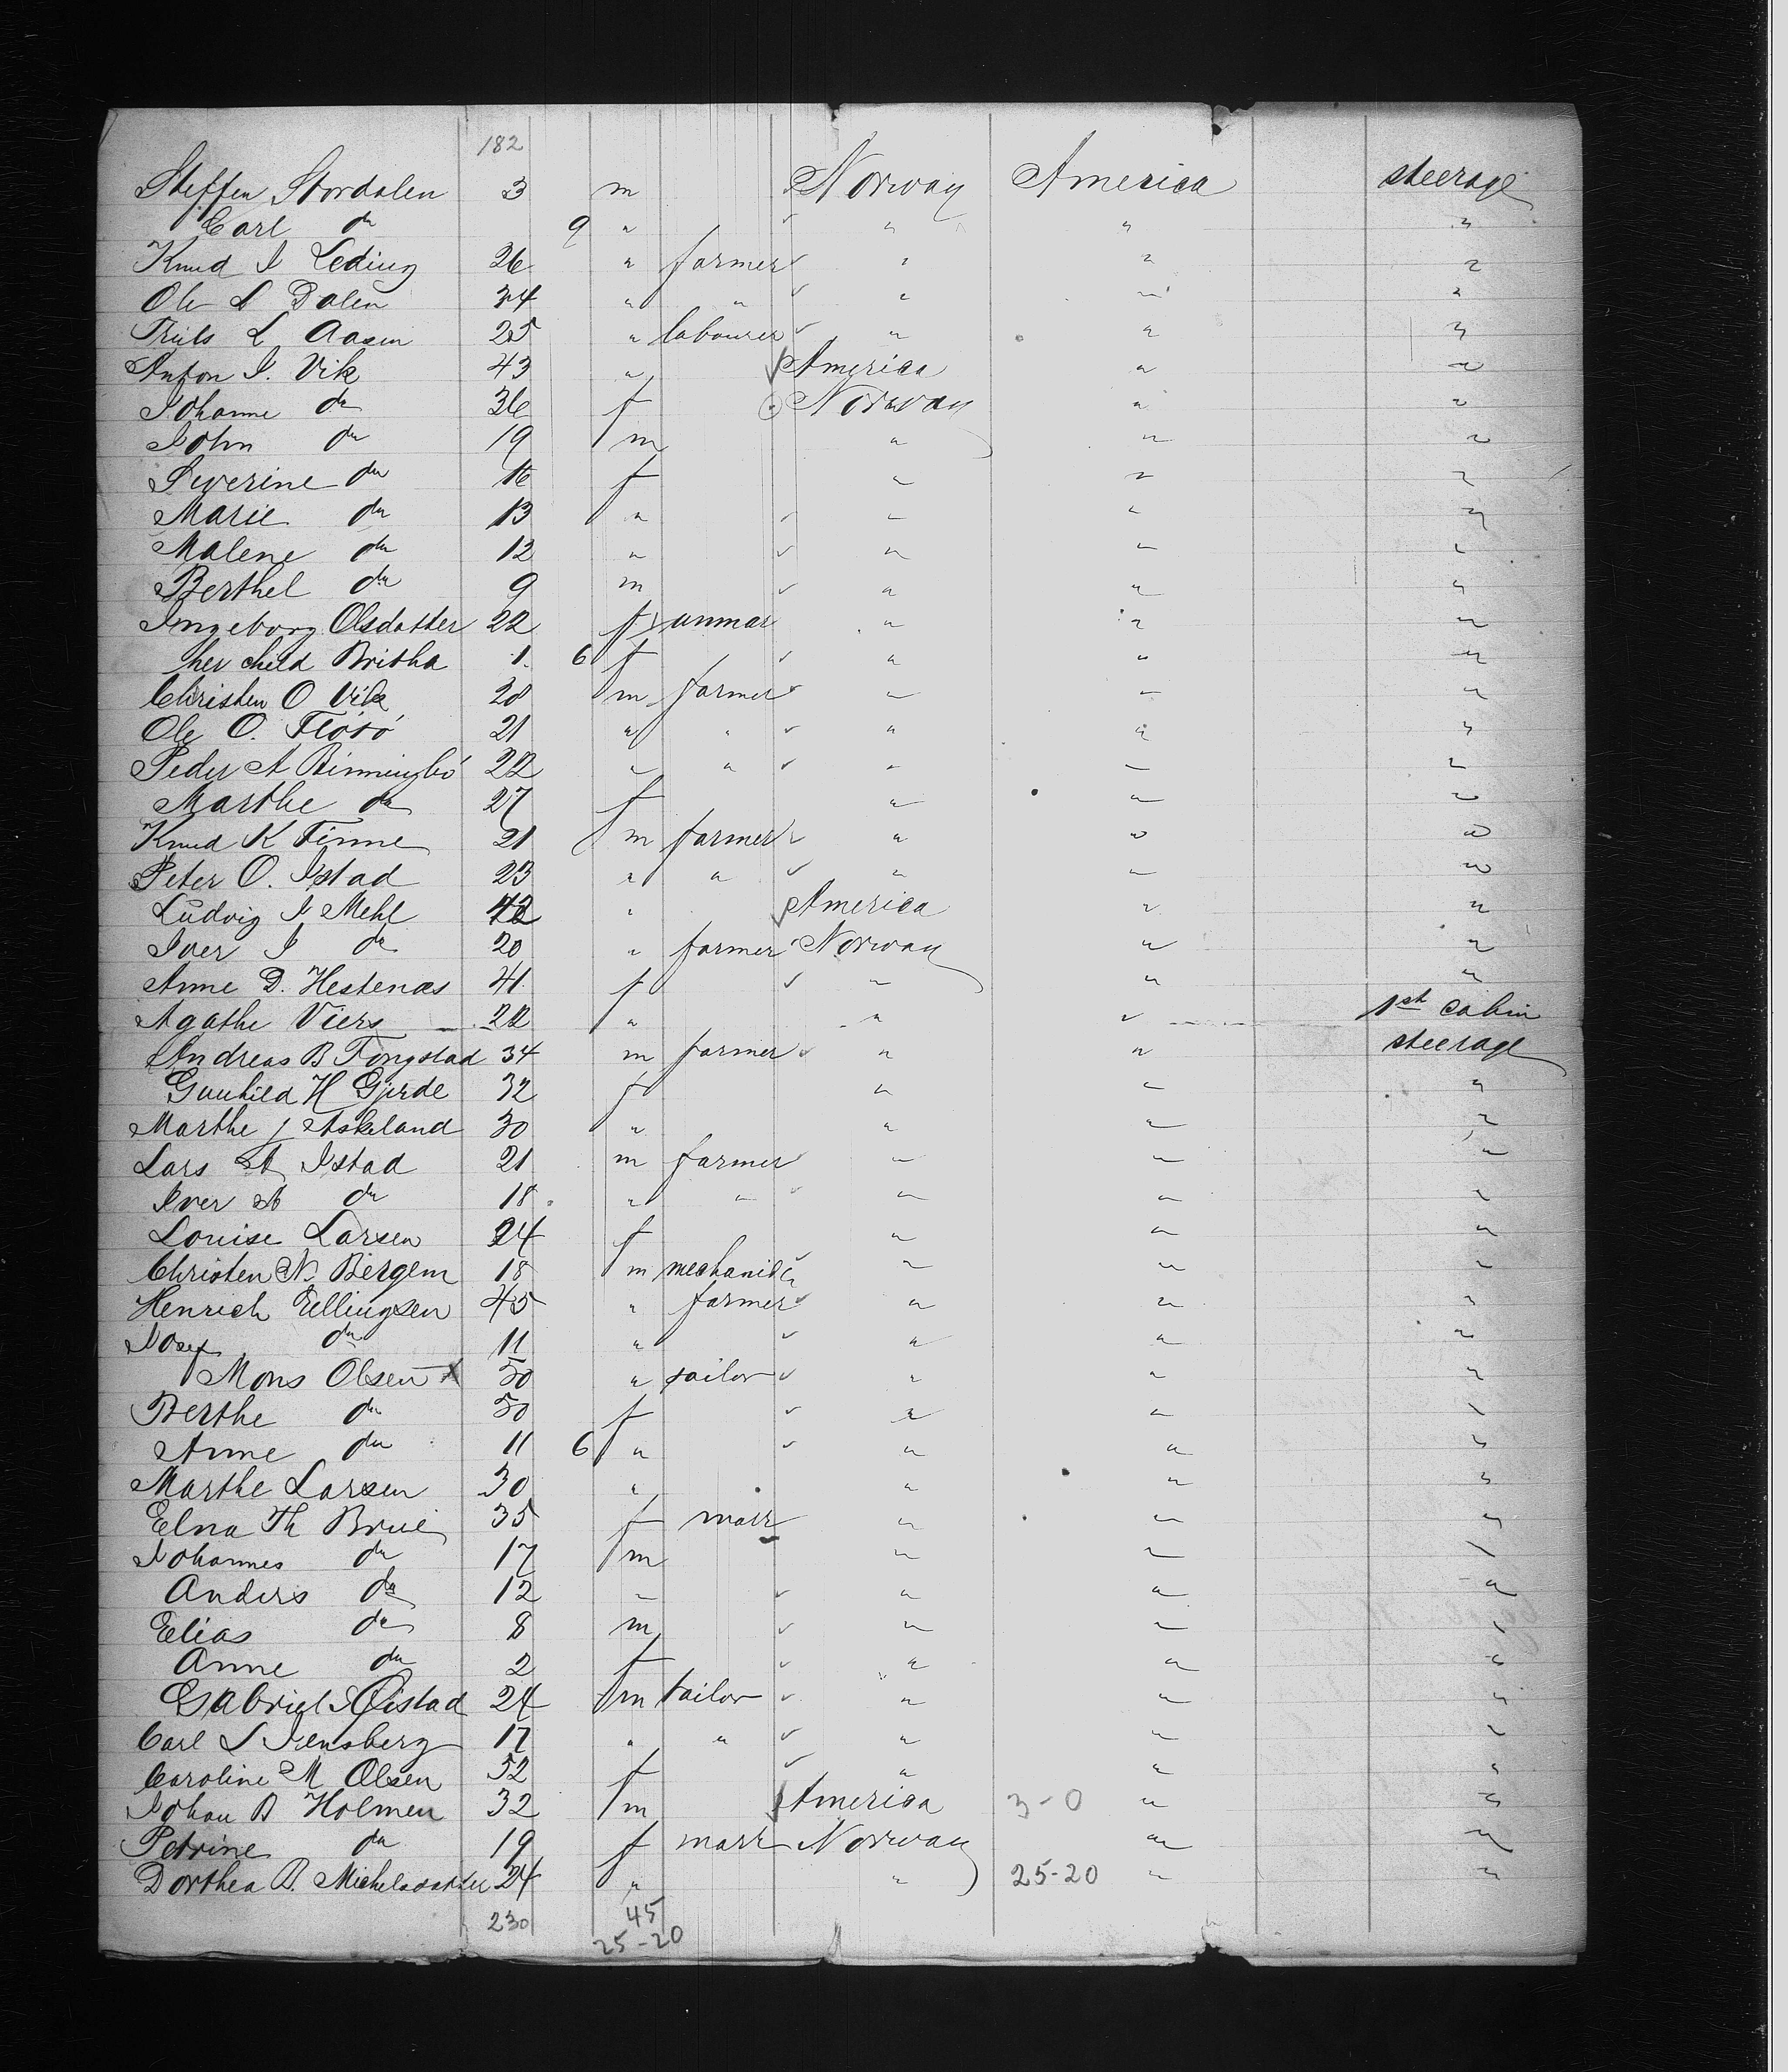 182
Steffen Stordalen 3 m Norway America steerage
Carl do 9 " " " "
Knud I Leding 26 " farmer " " "
Ole L Dalen 34 " " " " "
Truls L Aasen 25 " labourer " " "
Anton I. Vik 43 " America " "
Johanne do 36 f Norway " "
John do 19 m " " "
Siverine do 16 f " " "
Marie do 13 " " " "
Malene do 12 " " " "
Berthel do 9 m " " "
Ingeborg Olsdatter 22 f unmar " " "
her child Britha 1 6 f " " "
Christen O Vik 28 m farmer " " "
Ole O. 21 " " " " "
Peder A 22 " " " " "
Marthe do 27 f " " "
Knud K Finne 21 m farmer " " "
Peter O. Istad 23 " " " " "
Ludvig I Mehl 42 " America " "
Iver I do 20 " farmer Norway " "
Anne D. Hestenæs 41 f " " "
Agathe Viers 22 " " " 1st cabin
Andreas B Tongstad 34 m farmer " " steerage
Gunhild H Gjerde 32 f " " "
Marthe J Askeland 30 " " " "
Lars A Istad 21 m farmer " " "
Iver A do 18 " " " " "
Louise Larsen 24 f " " "
Christen N. Bergem 18 m mechanic " " "
Henrich Ellingsen 45 " farmer " " "
Josef do 11 " " " "
Mons Olsen x 50 " sailor " " "
Berthe do 50 f " " "
Anne do 11 6 " " " "
Marthe Larsen 30 " " " "
Elna Th 35 f marr " " "
Johannes do 17 m " " "
Anders do 12 " " " "
Elias do 8 m " " "
Anne do 2 f " " "
Gabriel Oistad 24 m tailor " " "
Carl L Jensberg 17 " " " " "
Caroline M Olsen 52 f " " "
Johan B Holmen 32 m America 3-0 " "
Petrine do 19 f marr Norway " "
Dorthea B. Michelsdatter 24 " " 25-20 " "
230 45
25-20